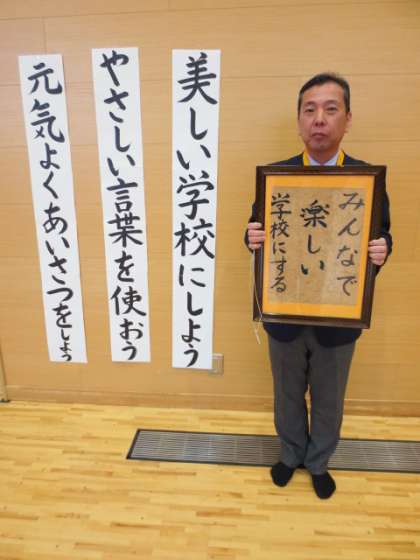 みんなで
楽しい
学校にする
美しい学校にしよう
やさしい言葉を使おう
元気よくあいさつをしよう